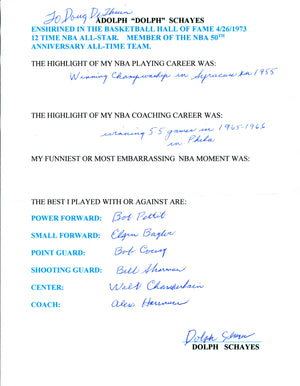 To Doug
ADOLPH "DOLPH" SCHAYES
ENSHRINED IN THE BASKETBALL HALL OF FAME 4/26/1973
12 TIME NBA ALL-STAR. MEMBER OF THE NBA 50TH
ANNIVERSARY ALL-TIME TEAM.
THE HIGHLIGHT OF MY NBA PLAYING CAREER WAS:
Winning Championship in Syracuse in 1955
THE HIGHLIGHT OF MY NBA COACHING CAREER WAS:
winning 55 games in 1965-1966
in Phila
MY FUNNIEST OR MOST EMBARRASSING NBA MOMENT WAS:
THE BEST I PLAYED WITH OR AGAINST ARE:
POWER FORWARD: Bob Pettit
SMALL FORWARD: Elgin Baylor
POINT GUARD: Bob Cousy
SHOOTING GUARD: Bill Sharman
CENTER: Walt Chamberlain
COACH: Alex Hannum
Dolph Schayes
DOLPH SCHAYES